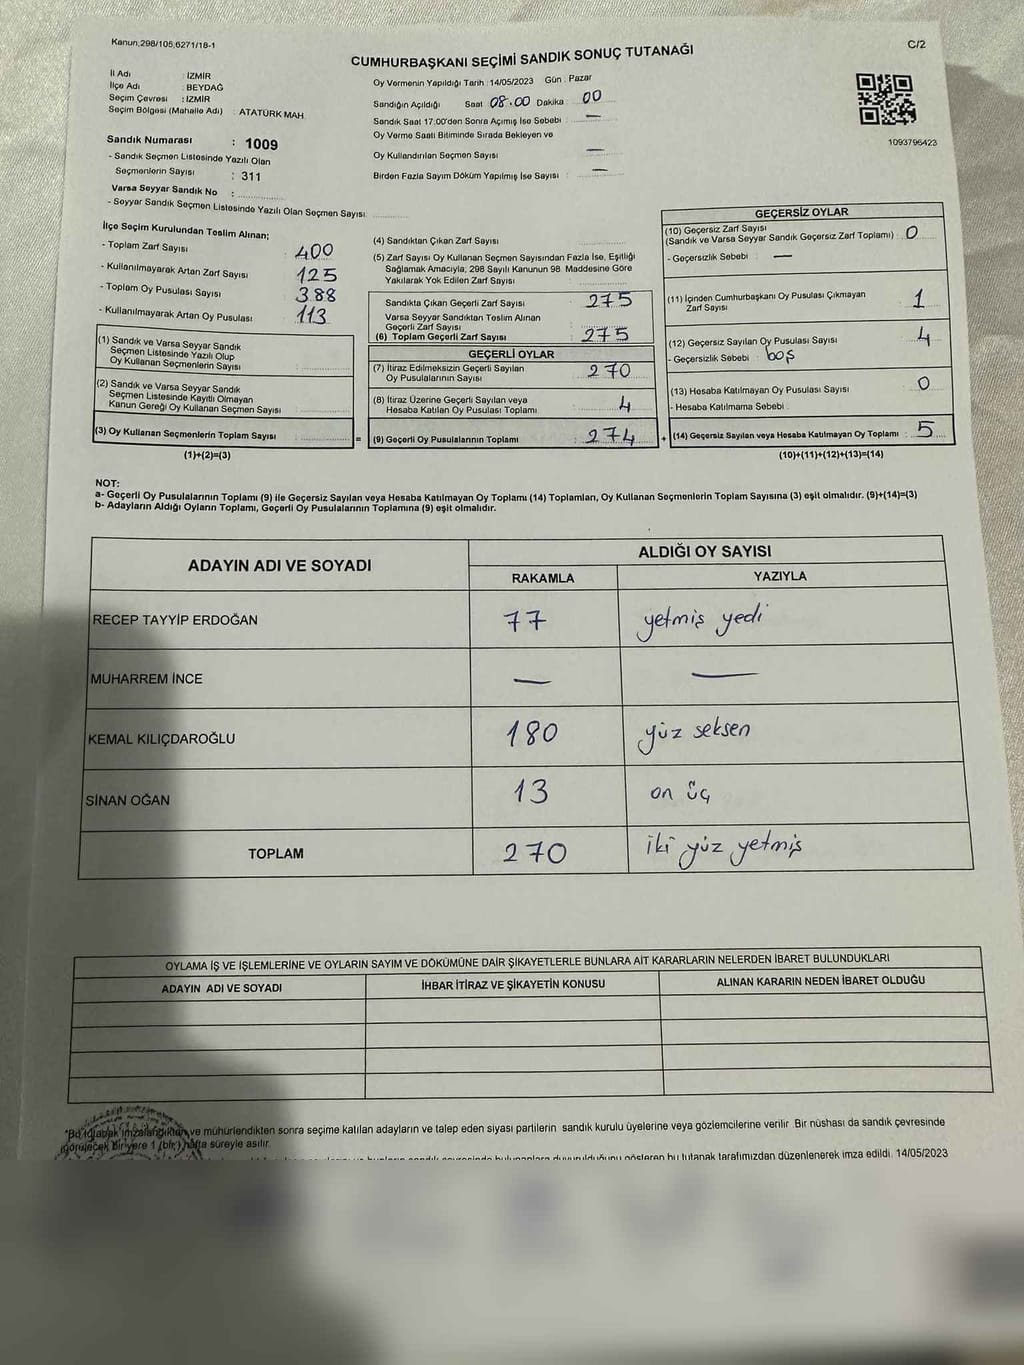 Kanun.298/105,6271/18-1
C/2
CUMHURBAŞKANI SEÇİMİ SANDIK SONUÇ TUTANAĞI
İl Adı : İZMİR
İlçe Adı : BEYDAĞ
Seçim Çevresi : İZMİR
Seçim Bölgesi (Mahalle Adı) : ATATÜRK MAH.
Oy Vermenin Yapıldığı Tarih : 14/05/2023 Gün : Pazar
Sandığın Açıldığı Saat 08.00 Dakika : 00
Sandık Saat 17:00'den Sonra Açılmış İse Sebebi : —
Oy Verme Saati Bitiminde Sırada Bekleyen ve
Oy Kullandırılan Seçmen Sayısı —
Birden Fazla Sayım Döküm Yapılmış İse Sayısı : —
1093796423
Sandık Numarası : 1009
- Sandık Seçmen Listesinde Yazılı Olan
Seçmenlerin Sayısı : 311
Varsa Seyyar Sandık No :
- Seyyar Sandık Seçmen Listesinde Yazılı Olan Seçmen Sayısı:
İlçe Seçim Kurulundan Teslim Alınan;
- Toplam Zarf Sayısı 400
- Kullanılmayarak Artan Zarf Sayısı 125
- Toplam Oy Pusulası Sayısı 388
- Kullanılmayarak Artan Oy Pusulası 113
(1) Sandık ve Varsa Seyyar Sandık
Seçmen Listesinde Yazılı Olup
Oy Kullanan Seçmenlerin Sayısı :
(2) Sandık ve Varsa Seyyar Sandık
Seçmen Listesinde Kayıtlı Olmayan
Kanun Gereği Oy Kullanan Seçmen Sayısı :
(3) Oy Kullanan Seçmenlerin Toplam Sayısı : =
(1)+(2)=(3)
(4) Sandıktan Çıkan Zarf Sayısı :
(5) Zarf Sayısı Oy Kullanan Seçmen Sayısından Fazla İse, Eşitliği
Sağlamak Amacıyla, 298 Sayılı Kanunun 98. Maddesine Göre
Yakılarak Yok Edilen Zarf Sayısı :
Sandıkta Çıkan Geçerli Zarf Sayısı : 275
Varsa Seyyar Sandıktan Teslim Alınan
Geçerli Zarf Sayısı :
(6) Toplam Geçerli Zarf Sayısı : 275
GEÇERLİ OYLAR
(7) İtiraz Edilmeksizin Geçerli Sayılan
Oy Pusulalarının Sayısı : 270
(8) İtiraz Üzerine Geçerli Sayılan veya
Hesaba Katılan Oy Pusulası Toplamı : 4
(9) Geçerli Oy Pusulalarının Toplamı : 274 +
GEÇERSİZ OYLAR
(10) Geçersiz Zarf Sayısı
(Sandık ve Varsa Seyyar Sandık Geçersiz Zarf Toplamı) : 0
- Geçersizlik Sebebi : —
(11) İçinden Cumhurbaşkanı Oy Pusulası Çıkmayan
Zarf Sayısı : 1
(12) Geçersiz Sayılan Oy Pusulası Sayısı : 4
- Geçersizlik Sebebi : boş
(13) Hesaba Katılmayan Oy Pusulası Sayısı : 0
- Hesaba Katılmama Sebebi :
(14) Geçersiz Sayılan veya Hesaba Katılmayan Oy Toplamı : 5
(10)+(11)+(12)+(13)=(14)
NOT:
a- Geçerli Oy Pusulalarının Toplamı (9) ile Geçersiz Sayılan veya Hesaba Katılmayan Oy Toplamı (14) Toplamları, Oy Kullanan Seçmenlerin Toplam Sayısına (3) eşit olmalıdır. (9)+(14)=(3)
b- Adayların Aldığı Oyların Toplamı, Geçerli Oy Pusulalarının Toplamına (9) eşit olmalıdır.
ADAYIN ADI VE SOYADI
ALDIĞI OY SAYISI
RAKAMLA YAZIYLA
RECEP TAYYİP ERDOĞAN 77 yetmiş yedi
MUHARREM İNCE — —
KEMAL KILIÇDAROĞLU 180 yüz seksen
SİNAN OĞAN 13 on üç
TOPLAM 270 iki yüz yetmiş
OYLAMA İŞ VE İŞLEMLERİNE VE OYLARIN SAYIM VE DÖKÜMÜNE DAİR ŞİKAYETLERLE BUNLARA AİT KARARLARIN NELERDEN İBARET BULUNDUKLARI
ADAYIN ADI VE SOYADI İHBAR İTİRAZ VE ŞİKAYETİN KONUSU ALINAN KARARIN NEDEN İBARET OLDUĞU
*Bu tutanak imzalandıktan ve mühürlendikten sonra seçime katılan adayların ve talep eden siyasi partilerin sandık kurulu üyelerine veya gözlemcilerine verilir. Bir nüshası da sandık çevresinde
görülecek bir yere 1 (bir) hafta süreyle asılır.
bulunanlara duyurulduğunu gösteren bu tutanak tarafımızdan düzenlenerek imza edildi. 14/05/2023